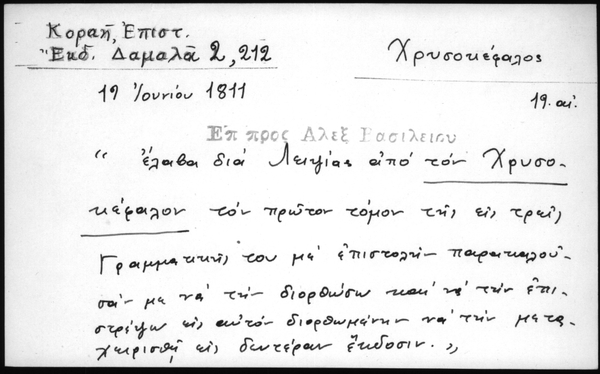 Κοραῆ, Ἐπιστ.
Ἔκδ. Δαμαλᾶ 2, 212
Χρυσοκέφαλος
19 Ἰουνίου 1811
19. αἰ.
Ἐπ προς Αλεξ Βασιλειου
" ἔλαβα διά Λειψίας ἀπό τόν Χρυσο-
κέφαλον τόν πρῶτον τόμον τῆς εἰς τρεῖς
Γραμματικῆς του μέ ἐπιστολήν παρακαλοῦ-
σάν με νά τήν διορθώσω καί νά τήν ἐπι-
στρέψω εἰς αὐτόν διορθωμένην νά τήν μετα-
χειρισθῇ εἰς δευτέραν ἔκδοσιν. "